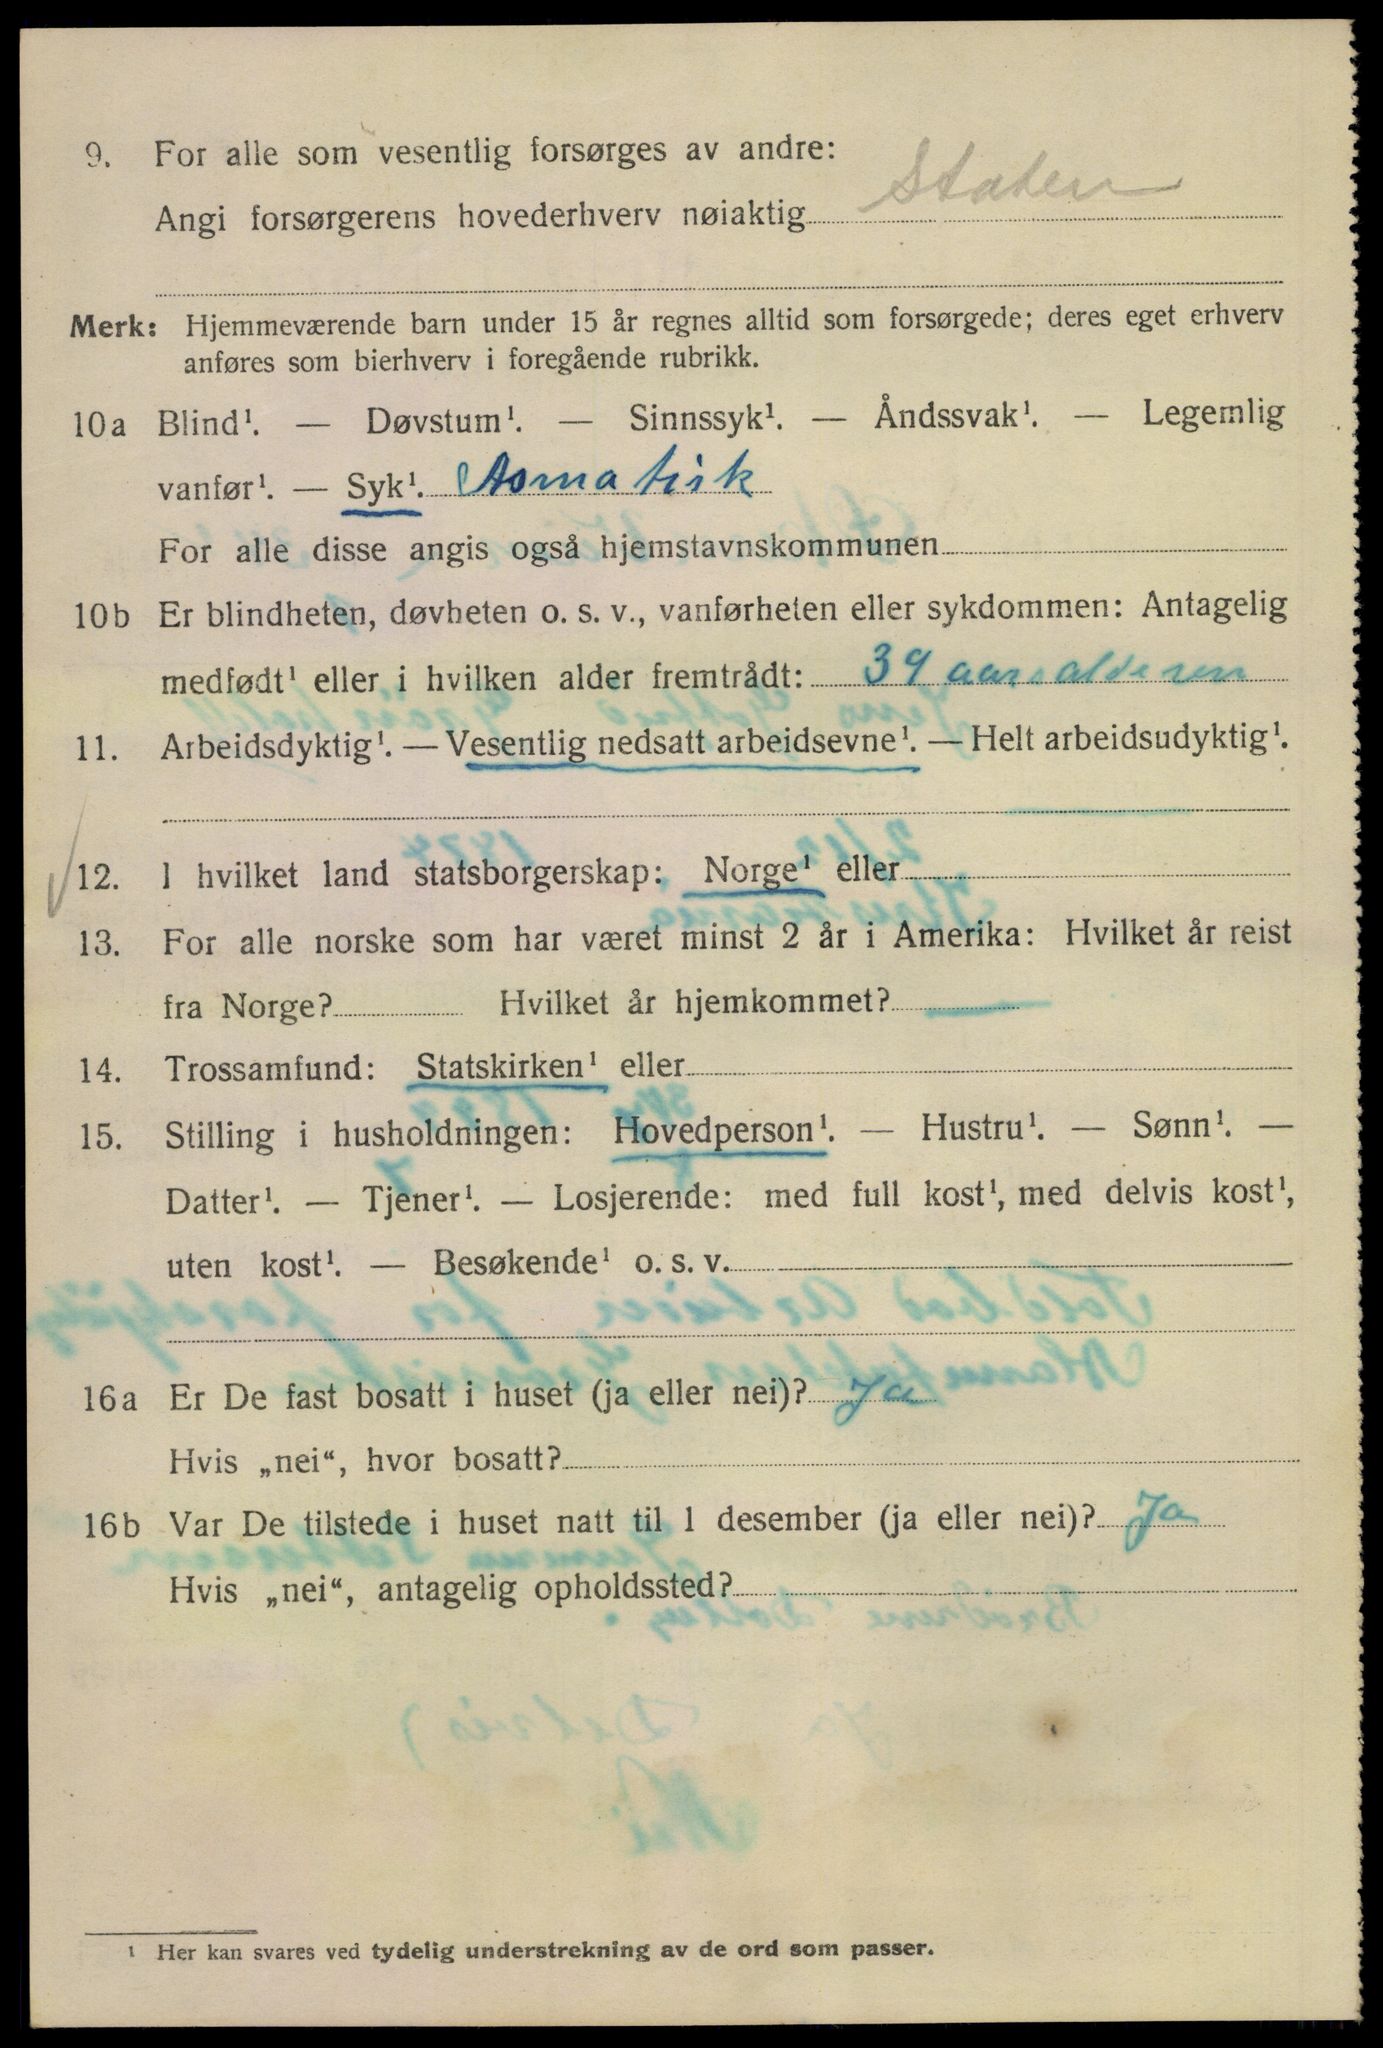 9. For alle som vesentlig forsørges av andre:
Angi forsørgerens hovederhverv nøiaktig Staten
Merk: Hjemmeværende barn under 15 år regnes alltid som forsørgede; deres eget erhverv
anføres som bierhverv i foregående rubrikk.
10a Blind¹. — Døvstum¹. — Sinnssyk¹. — Åndssvak¹. — Legemlig
vanfør¹. — Syk¹. Asmatisk
For alle disse angis også hjemstavnskommunen
10b Er blindheten, døvheten o. s. v., vanførheten eller sykdommen: Antagelig
medfødt¹ eller i hvilken alder fremtrådt: 39 aars alderen
11. Arbeidsdyktig¹. — Vesentlig nedsatt arbeidsevne¹. — Helt arbeidsudyktig¹.
12. I hvilket land statsborgerskap: Norge¹ eller
13. For alle norske som har været minst 2 år i Amerika: Hvilket år reist
fra Norge? Hvilket år hjemkommet?
14. Trossamfund: Statskirken¹ eller
15. Stilling i husholdningen: Hovedperson¹. — Hustru¹. — Sønn¹. —
Datter¹. — Tjener¹. — Losjerende: med full kost¹, med delvis kost¹,
uten kost¹. — Besøkende¹ o. s. v.
16a Er De fast bosatt i huset (ja eller nei)? Ja
Hvis „nei“, hvor bosatt?
16b Var De tilstede i huset natt til 1 desember (ja eller nei)? Ja
Hvis „nei“, antagelig opholdssted?
¹ Her kan svares ved tydelig understrekning av de ord som passer.